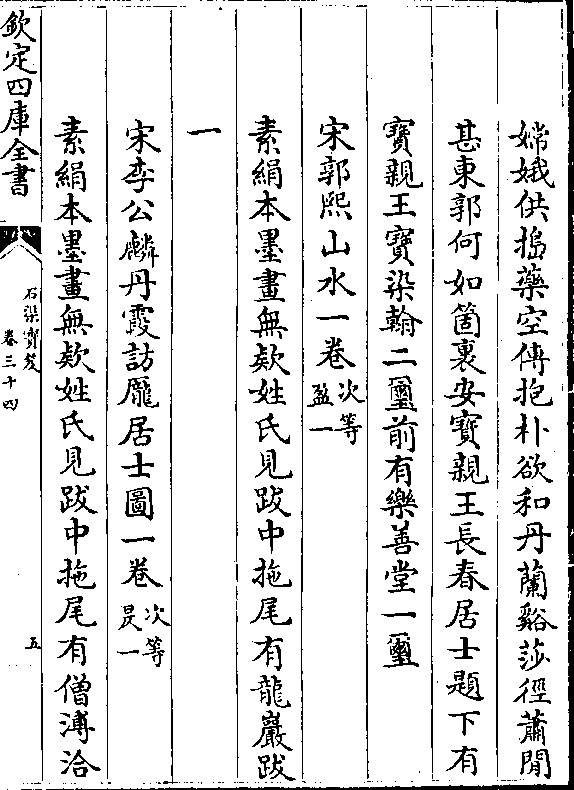 嫦娥供搗藥空傳抱朴欲和丹蘭谿莎徑蕭閒
甚東郭何如箇裏安寶親王長春居士題下有
寶親王寶染翰二璽前有樂善堂一璽
宋郭熙山水一卷次等盈一
素絹本墨畫無欵姓氏見跋中拖尾有龍巖跋
一
宋李公麟丹霞訪龎居士圖一卷次等昃一
素絹本墨畫無欵姓氏見跋中拖尾有僧溥洽
欽定四庫全書
石渠寶笈
卷三十四
五